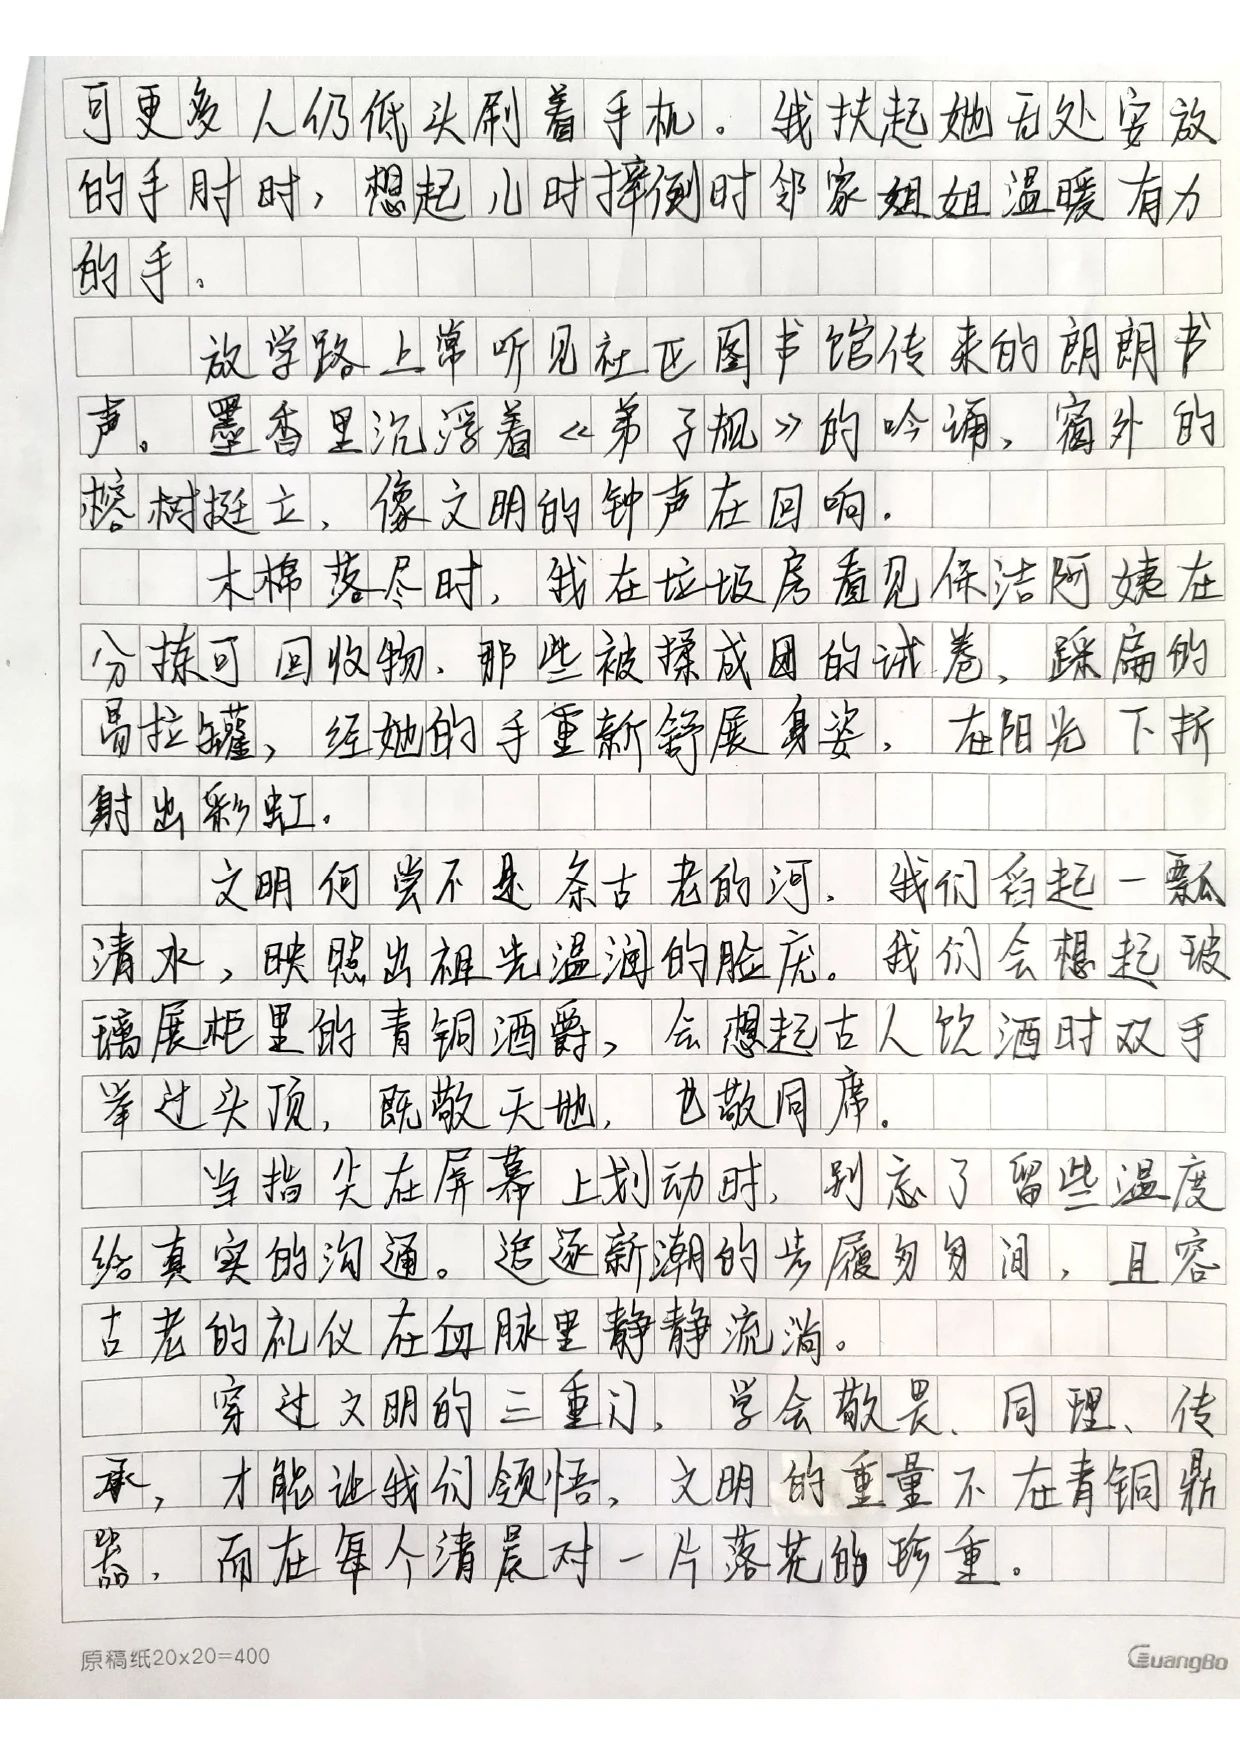 可更多人仍低头刷着手机。我扶起她无处安放
的手肘时，想起儿时摔倒时邻家姐姐温暖有力
的手。
放学路上常听见社区图书馆传来的朗朗书
声。墨香里沉浮着《弟子规》的吟诵，窗外的
榕树挺立，像文明的钟声在回响。
木棉落尽时，我在垃圾房看见保洁阿姨在
分拣可回收物。那些被揉成团的试卷，踩扁的
易拉罐，经她的手重新舒展身姿，在阳光下折
射出彩虹。
文明何尝不是条古老的河，我们舀起一瓢
清水，映照出祖先温润的脸庞。我们会想起玻
璃展柜里的青铜酒爵，会想起古人饮酒时双手
举过头顶，既敬天地，也敬同席。
当指尖在屏幕上划动时，别忘了留些温度
给真实的沟通。追逐新潮的步履匆匆间，且容
古老的礼仪在血脉里静静流淌。
穿过文明的三重门，学会敬畏、同理、传
承，才能让我们领悟，文明的重量不在青铜鼎
器，而在每个清晨对一片落花的珍重。
原稿纸20x20=400
GuangBo